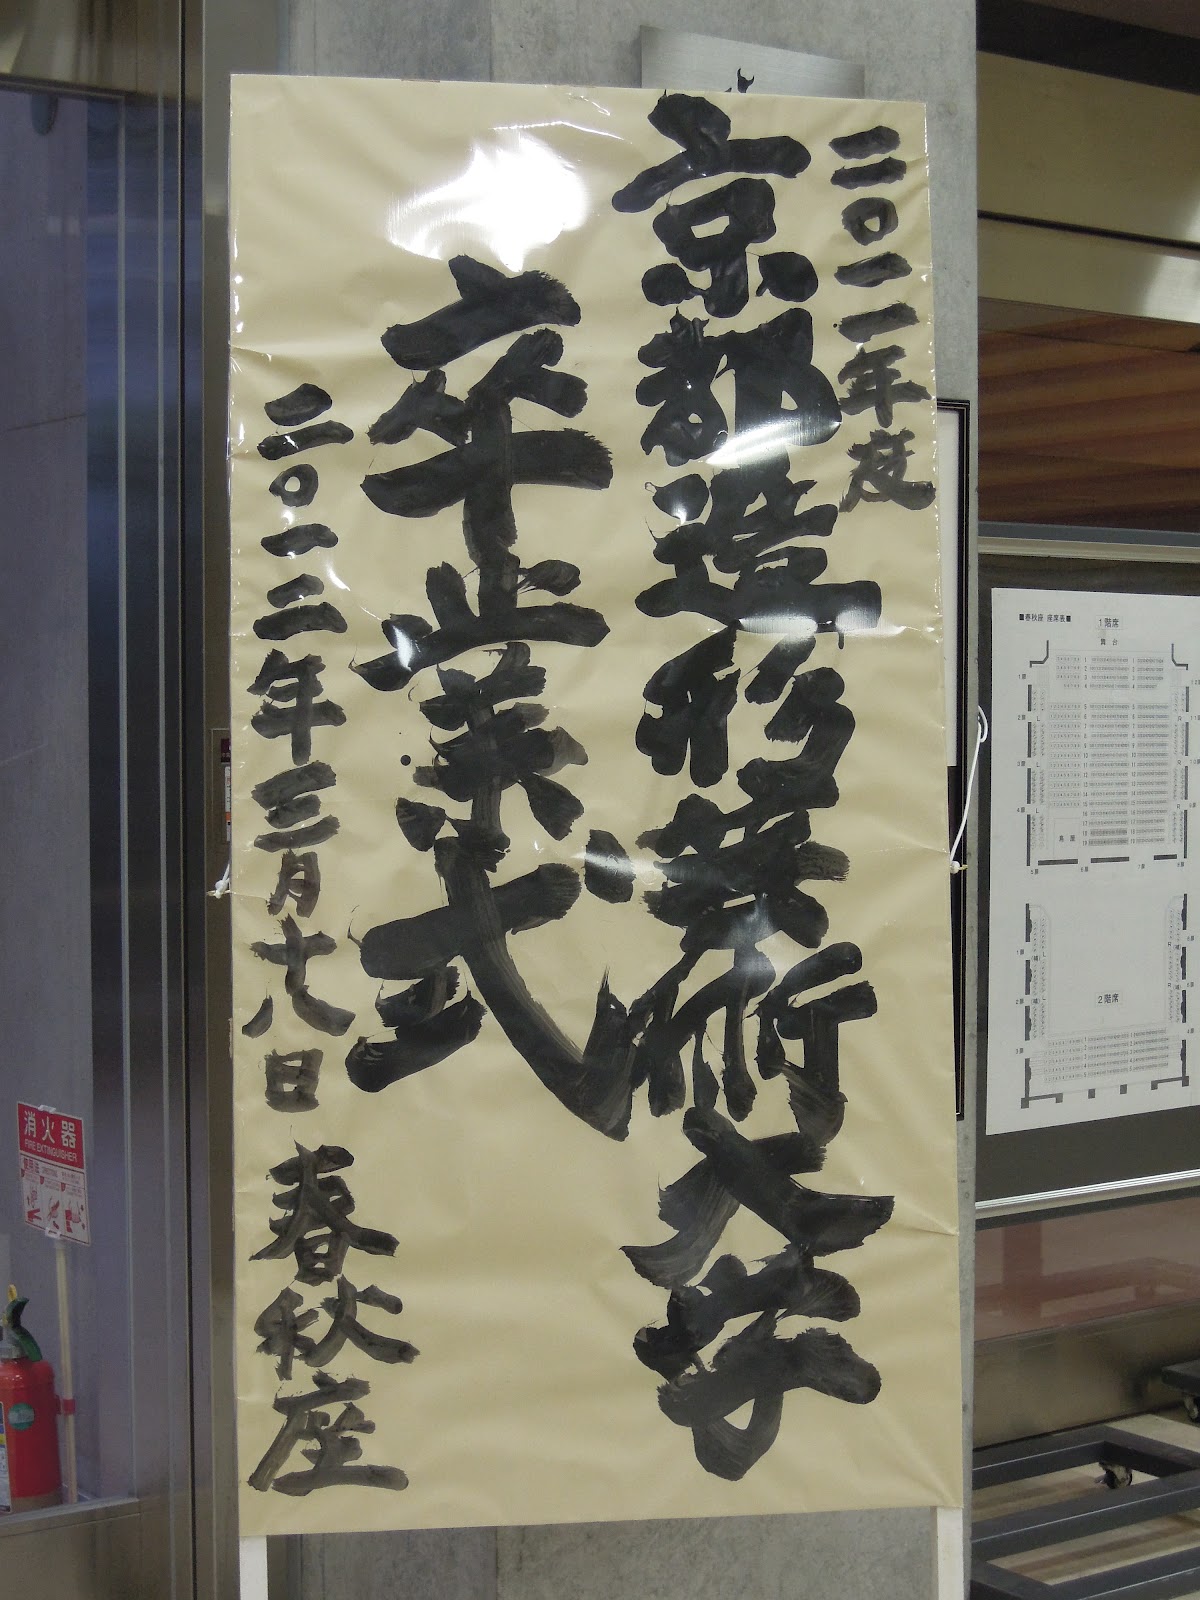 二〇一一年度
京都造形芸術大学
卒業式
二〇一二年三月十八日 春秋座
消火器
FIRE EXTINGUISHER
■春秋座 座席表■
1階席
舞台
鳥屋
2階席